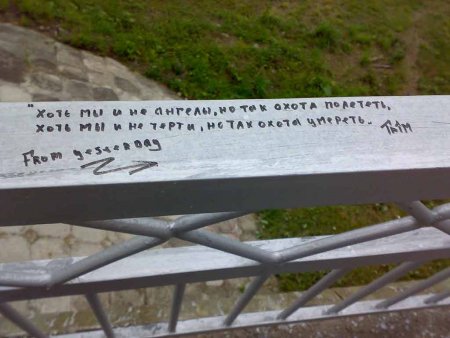 "Хоть мы и не ангелы, но так охота полететь,
хоть мы и не черти, но так охота умереть.
From